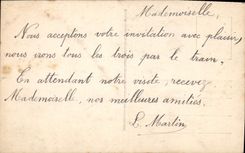 Mademoiselle,
Nous acceptons votre invitation avec plaisir,
nous irons tous les trois par le train.
En attendant notre visite, recevez
Mademoiselle, nos meilleures amitiés.
L. Martin